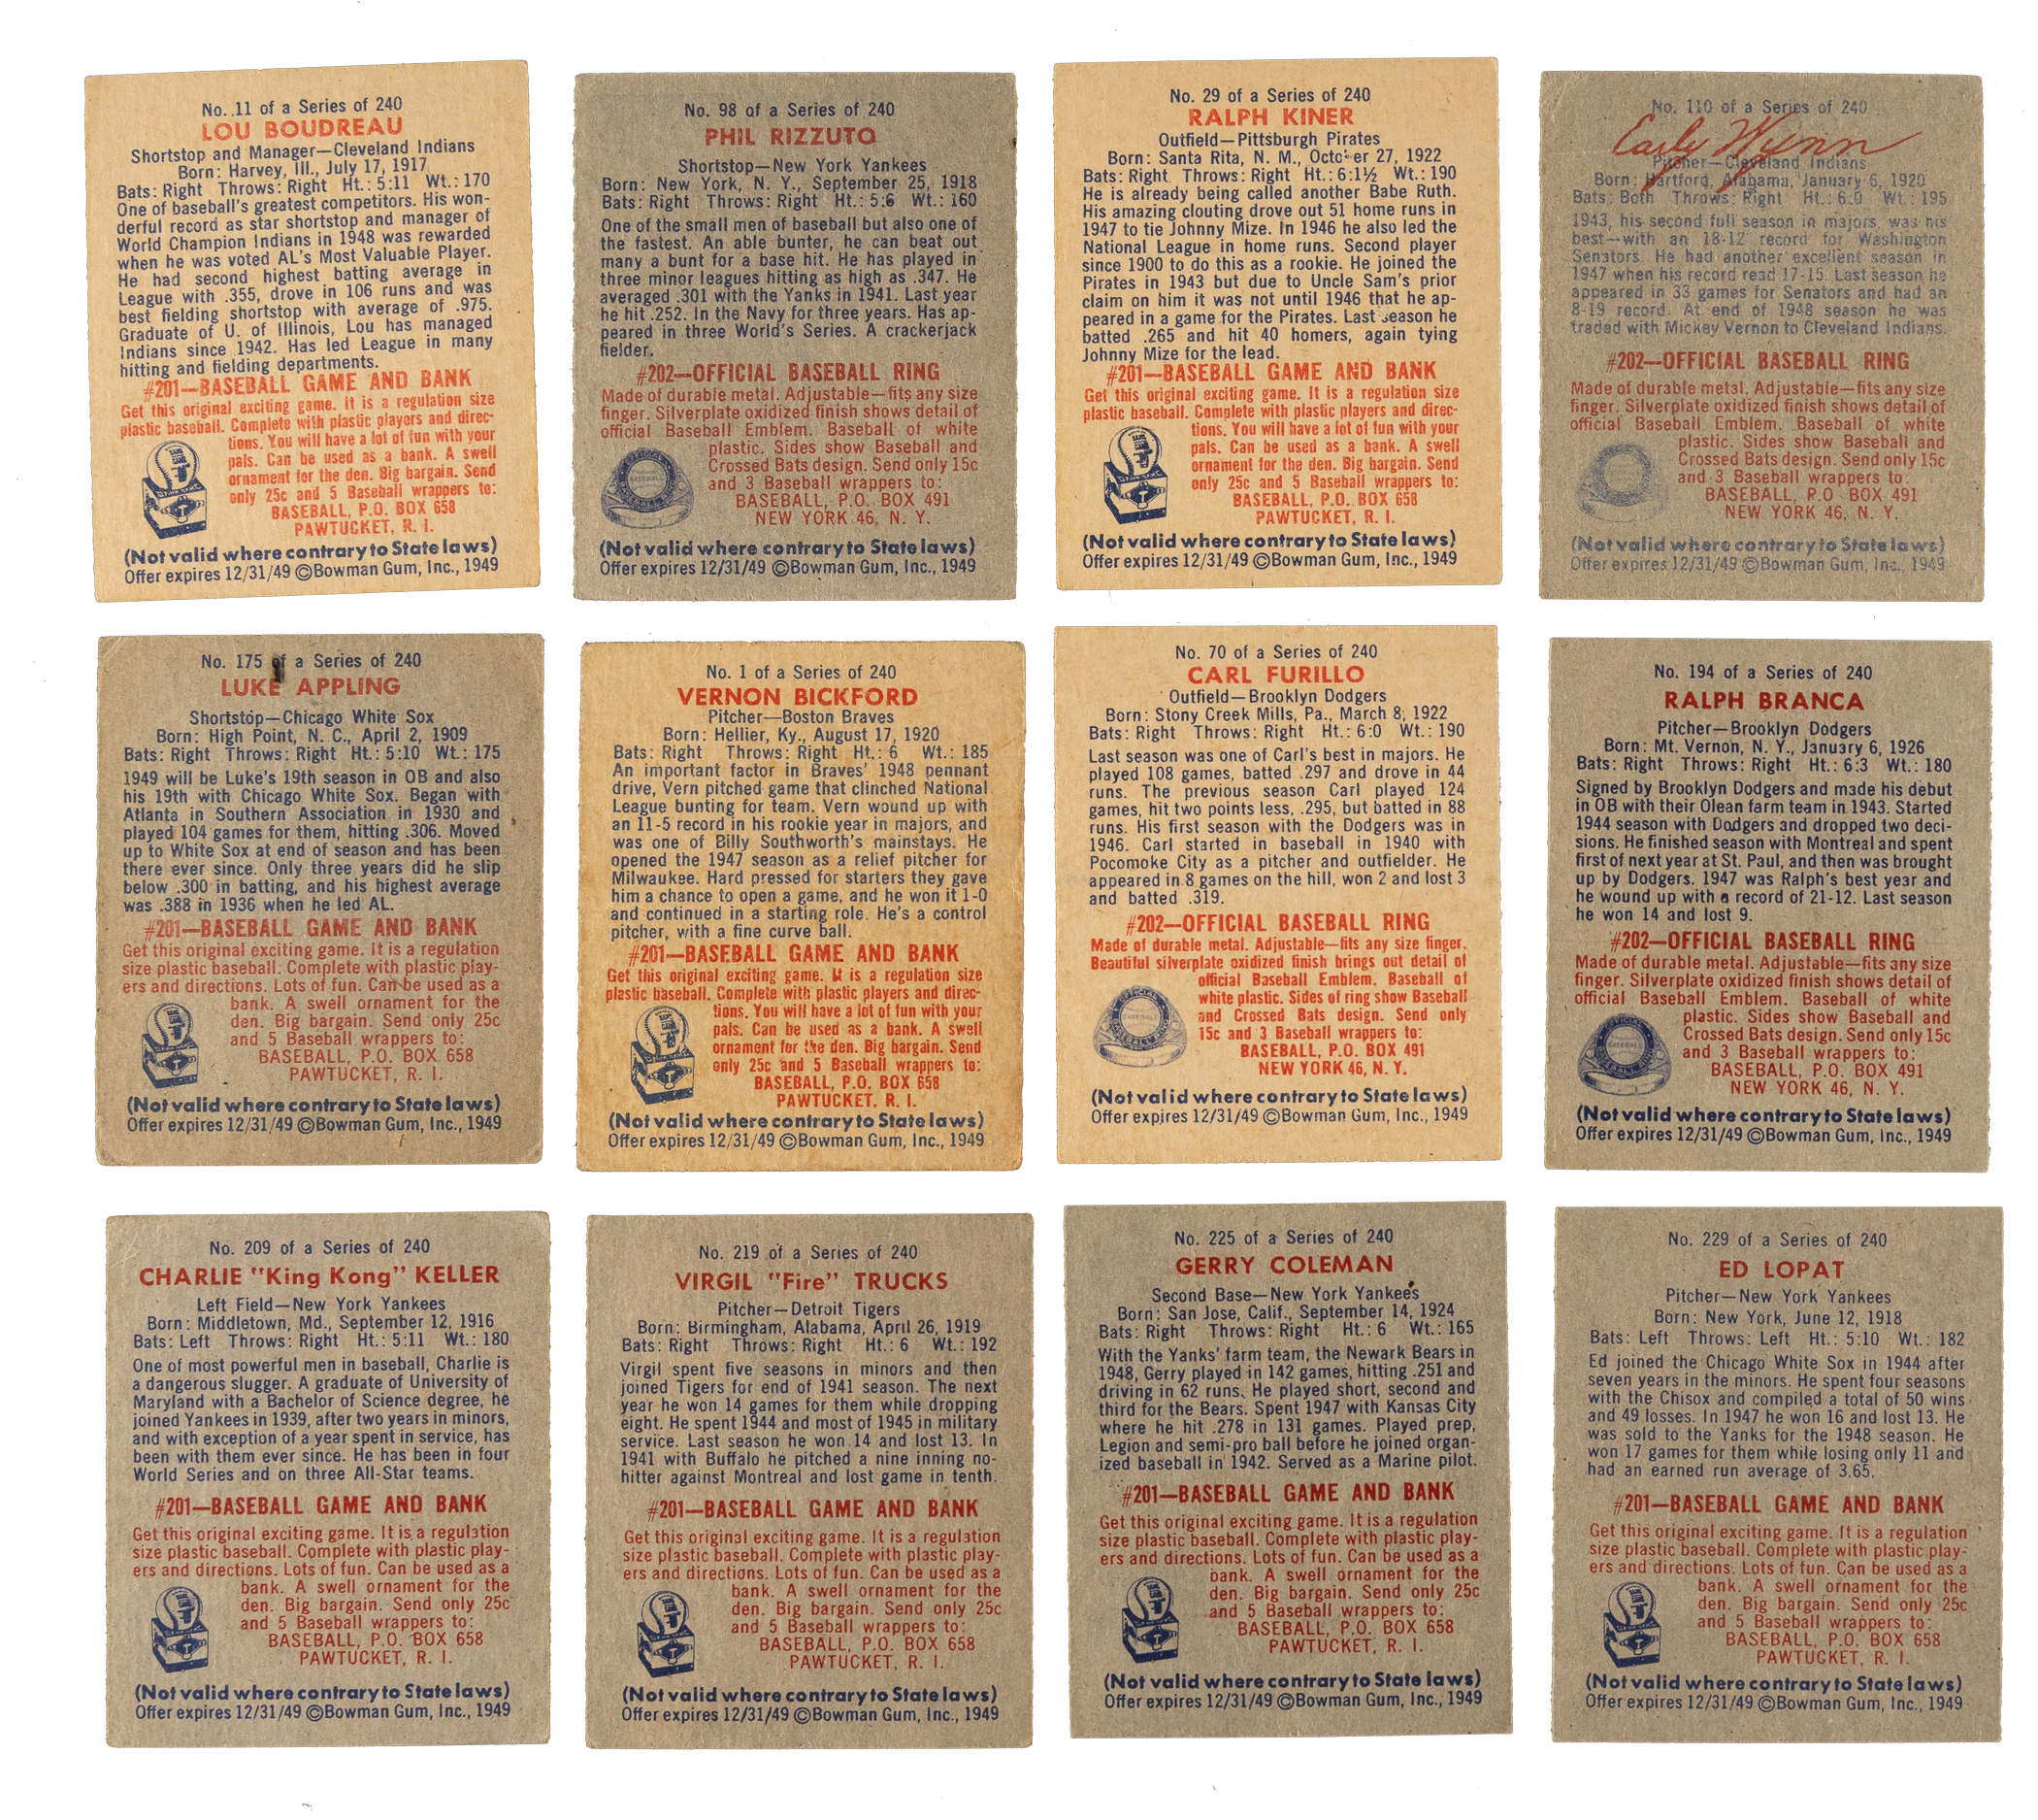 No. 11 of a Series of 240
LOU BOUDREAU
Shortstop and Manager—Cleveland Indians
Born: Harvey, Ill., July 17, 1917
Bats: Right Throws: Right Ht.: 5:11 Wt.: 170
One of baseball's greatest competitors. His won-
derful record as star shortstop and manager of
World Champion Indians in 1948 was rewarded
when he was voted AL's Most Valuable Player.
He had second highest batting average in
League with .355, drove in 106 runs and was
best fielding shortstop with average of .975.
Graduate of U. of Illinois, Lou has managed
Indians since 1942. Has led League in many
hitting and fielding departments.
#201—BASEBALL GAME AND BANK
Get this original exciting game. It is a regulation size
plastic baseball. Complete with plastic players and direc-
tions. You will have a lot of fun with your
pals. Can be used as a bank. A swell
ornament for the den. Big bargain. Send
only 25c and 5 Baseball wrappers to:
BASEBALL, P.O. BOX 658
PAWTUCKET, R. I.
(Not valid where contrary to State laws)
Offer expires 12/31/49 ©Bowman Gum, Inc., 1949
No. 98 of a Series of 240
PHIL RIZZUTO
Shortstop—New York Yankees
Born: New York, N. Y., September 25, 1918
Bats: Right Throws: Right Ht.: 5:6 Wt.: 160
One of the small men of baseball but also one of
the fastest. An able bunter, he can beat out
many a bunt for a base hit. He has played in
three minor leagues hitting as high as .347. He
averaged .301 with the Yanks in 1941. Last year
he hit .252. In the Navy for three years. Has ap-
peared in three World's Series. A crackerjack
fielder.
#202—OFFICIAL BASEBALL RING
Made of durable metal. Adjustable—fits any size
finger. Silverplate oxidized finish shows detail of
official Baseball Emblem. Baseball of white
plastic. Sides show Baseball and
Crossed Bats design. Send only 15c
and 3 Baseball wrappers to:
BASEBALL, P.O. BOX 491
NEW YORK 46, N. Y.
(Not valid where contrary to State laws)
Offer expires 12/31/49 ©Bowman Gum, Inc., 1949
No. 29 of a Series of 240
RALPH KINER
Outfield—Pittsburgh Pirates
Born: Santa Rita, N. M., October 27, 1922
Bats: Right Throws: Right Ht.: 6:1½ Wt.: 190
He is already being called another Babe Ruth.
His amazing clouting drove out 51 home runs in
1947 to tie Johnny Mize. In 1946 he also led the
National League in home runs. Second player
since 1900 to do this as a rookie. He joined the
Pirates in 1943 but due to Uncle Sam's prior
claim on him it was not until 1946 that he ap-
peared in a game for the Pirates. Last season he
batted .265 and hit 40 homers, again tying
Johnny Mize for the lead.
#201—BASEBALL GAME AND BANK
Get this original exciting game. It is a regulation size
plastic baseball. Complete with plastic players and direc-
tions. You will have a lot of fun with your
pals. Can be used as a bank. A swell
ornament for the den. Big bargain. Send
only 25c and 5 Baseball wrappers to:
BASEBALL, P.O. BOX 658
PAWTUCKET, R. I.
(Not valid where contrary to State laws)
Offer expires 12/31/49 ©Bowman Gum, Inc., 1949
No. 110 of a Series of 240
Early Wynn
Pitcher—Cleveland Indians
Born: Hartford, Alabama, January 6, 1920
Bats: Both Throws: Right Ht.: 6:0 Wt.: 195
1943, his second full season in majors, was his
best—with an 18-12 record for Washington
Senators. He had another excellent season in
1947 when his record read 17-15. Last season he
appeared in 33 games for Senators and had an
8-19 record. At end of 1948 season he was
traded with Mickey Vernon to Cleveland Indians.
#202—OFFICIAL BASEBALL RING
Made of durable metal. Adjustable—fits any size
finger. Silverplate oxidized finish shows detail of
official Baseball Emblem. Baseball of white
plastic. Sides show Baseball and
Crossed Bats design. Send only 15c
and 3 Baseball wrappers to:
BASEBALL, P.O BOX 491
NEW YORK 46, N. Y.
(Not valid where contrary to State laws)
Offer expires 12/31/49 ©Bowman Gum, Inc., 1949
No. 175 of a Series of 240
LUKE APPLING
Shortstop—Chicago White Sox
Born: High Point, N. C., April 2, 1909
Bats: Right Throws: Right Ht.: 5:10 Wt.: 175
1949 will be Luke's 19th season in OB and also
his 19th with Chicago White Sox. Began with
Atlanta in Southern Association in 1930 and
played 104 games for them, hitting .306. Moved
up to White Sox at end of season and has been
there ever since. Only three years did he slip
below .300 in batting, and his highest average
was .388 in 1936 when he led AL.
#201—BASEBALL GAME AND BANK
Get this original exciting game. It is a regulation
size plastic baseball. Complete with plastic play-
ers and directions. Lots of fun. Can be used as a
bank. A swell ornament for the
den. Big bargain. Send only 25c
and 5 Baseball wrappers to:
BASEBALL, P.O. BOX 658
PAWTUCKET, R. I.
(Not valid where contrary to State laws)
Offer expires 12/31/49 ©Bowman Gum, Inc., 1949
No. 1 of a Series of 240
VERNON BICKFORD
Pitcher—Boston Braves
Born: Hellier, Ky., August 17, 1920
Bats: Right Throws: Right Ht.: 6 Wt.: 185
An important factor in Braves' 1948 pennant
drive, Vern pitched game that clinched National
League bunting for team. Vern wound up with
an 11-5 record in his rookie year in majors, and
was one of Billy Southworth's mainstays. He
opened the 1947 season as a relief pitcher for
Milwaukee. Hard pressed for starters they gave
him a chance to open a game, and he won it 1-0
and continued in a starting role. He's a control
pitcher, with a fine curve ball.
#201—BASEBALL GAME AND BANK
Get this original exciting game. It is a regulation size
plastic baseball. Complete with plastic players and direc-
tions. You will have a lot of fun with your
pals. Can be used as a bank. A swell
ornament for the den. Big bargain. Send
only 25c and 5 Baseball wrappers to:
BASEBALL, P.O. BOX 658
PAWTUCKET, R. I.
(Not valid where contrary to State laws)
Offer expires 12/31/49 ©Bowman Gum, Inc., 1949
No. 70 of a Series of 240
CARL FURILLO
Outfield—Brooklyn Dodgers
Born: Stony Creek Mills, Pa., March 8, 1922
Bats: Right Throws: Right Ht.: 6:0 Wt.: 190
Last season was one of Carl's best in majors. He
played 108 games, batted .297 and drove in 44
runs. The previous season Carl played 124
games, hit two points less, .295, but batted in 88
runs. His first season with the Dodgers was in
1946. Carl started in baseball in 1940 with
Pocomoke City as a pitcher and outfielder. He
appeared in 8 games on the hill, won 2 and lost 3
and batted .319.
#202—OFFICIAL BASEBALL RING
Made of durable metal. Adjustable—fits any size finger.
Beautiful silverplate oxidized finish brings out detail of
official Baseball Emblem. Baseball of
white plastic. Sides of ring show Baseball
and Crossed Bats design. Send only
15c and 3 Baseball wrappers to:
BASEBALL, P.O. BOX 491
NEW YORK 46, N. Y.
(Not valid where contrary to State laws)
Offer expires 12/31/49 ©Bowman Gum, Inc., 1949
No. 194 of a Series of 240
RALPH BRANCA
Pitcher—Brooklyn Dodgers
Born: Mt. Vernon, N. Y., January 6, 1926
Bats: Right Throws: Right Ht.: 6:3 Wt.: 180
Signed by Brooklyn Dodgers and made his debut
in OB with their Olean farm team in 1943. Started
1944 season with Dodgers and dropped two deci-
sions. He finished season with Montreal and spent
first of next year at St. Paul, and then was brought
up by Dodgers. 1947 was Ralph's best year and
he wound up with a record of 21-12. Last season
he won 14 and lost 9.
#202—OFFICIAL BASEBALL RING
Made of durable metal. Adjustable—fits any size
finger. Silverplate oxidized finish shows detail of
official Baseball Emblem. Baseball of white
plastic. Sides show Baseball and
Crossed Bats design. Send only 15c
and 3 Baseball wrappers to:
BASEBALL, P.O. BOX 491
NEW YORK 46, N. Y.
(Not valid where contrary to State laws)
Offer expires 12/31/49 ©Bowman Gum, Inc., 1949
No. 209 of a Series of 240
CHARLIE "King Kong" KELLER
Left Field—New York Yankees
Born: Middletown, Md., September 12, 1916
Bats: Left Throws: Right Ht.: 5:11 Wt.: 180
One of most powerful men in baseball, Charlie is
a dangerous slugger. A graduate of University of
Maryland with a Bachelor of Science degree, he
joined Yankees in 1939, after two years in minors,
and with exception of a year spent in service, has
been with them ever since. He has been in four
World Series and on three All-Star teams.
#201—BASEBALL GAME AND BANK
Get this original exciting game. It is a regulation
size plastic baseball. Complete with plastic play-
ers and directions. Lots of fun. Can be used as a
bank. A swell ornament for the
den. Big bargain. Send only 25c
and 5 Baseball wrappers to:
BASEBALL, P.O. BOX 658
PAWTUCKET, R. I.
(Not valid where contrary to State laws)
Offer expires 12/31/49 ©Bowman Gum, Inc., 1949
No. 219 of a Series of 240
VIRGIL "Fire" TRUCKS
Pitcher—Detroit Tigers
Born: Birmingham, Alabama, April 26, 1919
Bats: Right Throws: Right Ht.: 6 Wt.: 192
Virgil spent five seasons in minors and then
joined Tigers for end of 1941 season. The next
year he won 14 games for them while dropping
eight. He spent 1944 and most of 1945 in military
service. Last season he won 14 and lost 13. In
1941 with Buffalo he pitched a nine inning no-
hitter against Montreal and lost game in tenth.
#201—BASEBALL GAME AND BANK
Get this original exciting game. It is a regulation
size plastic baseball. Complete with plastic play-
ers and directions. Lots of fun. Can be used as a
bank. A swell ornament for the
den. Big bargain. Send only 25c
and 5 Baseball wrappers to:
BASEBALL, P.O. BOX 658
PAWTUCKET, R. I.
(Not valid where contrary to State laws)
Offer expires 12/31/49 ©Bowman Gum, Inc., 1949
No. 225 of a Series of 240
GERRY COLEMAN
Second Base—New York Yankees
Born: San Jose, Calif., September 14, 1924
Bats: Right Throws: Right Ht.: 6 Wt.: 165
With the Yanks' farm team, the Newark Bears in
1948, Gerry played in 142 games, hitting .251 and
driving in 62 runs. He played short, second and
third for the Bears. Spent 1947 with Kansas City
where he hit .278 in 131 games. Played prep,
Legion and semi-pro ball before he joined organ-
ized baseball in 1942. Served as a Marine pilot.
#201—BASEBALL GAME AND BANK
Get this original exciting game. It is a regulation
size plastic baseball. Complete with plastic play-
ers and directions. Lots of fun. Can be used as a
bank. A swell ornament for the
den. Big bargain. Send only 25c
and 5 Baseball wrappers to:
BASEBALL, P.O. BOX 658
PAWTUCKET, R. I.
(Not valid where contrary to State laws)
Offer expires 12/31/49 ©Bowman Gum, Inc., 1949
No. 229 of a Series of 240
ED LOPAT
Pitcher—New York Yankees
Born: New York, June 12, 1918
Bats: Left Throws: Left Ht.: 5:10 Wt.: 182
Ed joined the Chicago White Sox in 1944 after
seven years in the minors. He spent four seasons
with the Chisox and compiled a total of 50 wins
and 49 losses. In 1947 he won 16 and lost 13. He
was sold to the Yanks for the 1948 season. He
won 17 games for them while losing only 11 and
had an earned run average of 3.65.
#201—BASEBALL GAME AND BANK
Get this original exciting game. It is a regulation
size plastic baseball. Complete with plastic play-
ers and directions. Lots of fun. Can be used as a
bank. A swell ornament for the
den. Big bargain. Send only 25c
and 5 Baseball wrappers to:
BASEBALL, P.O. BOX 658
PAWTUCKET, R. I.
(Not valid where contrary to State laws)
Offer expires 12/31/49 ©Bowman Gum, Inc., 1949